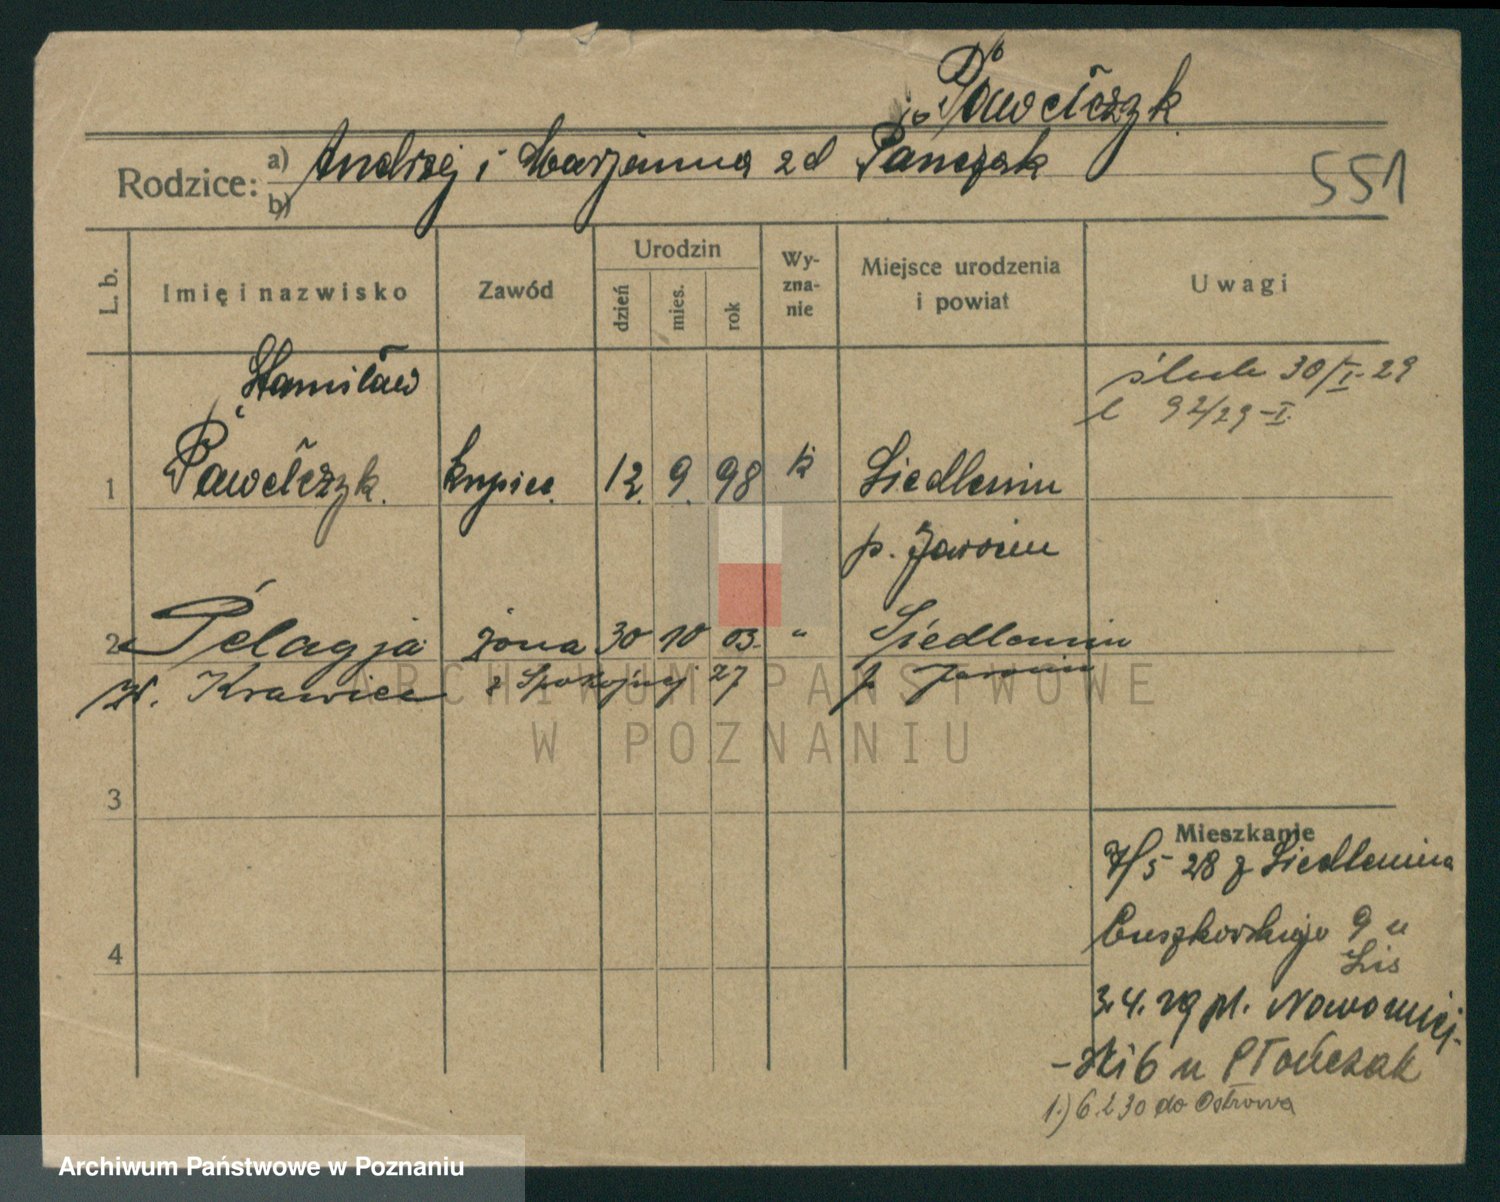 Pawełczyk
Rodzice: a) Andrzej i Marjanna zd Pańczak
b)
551
L. b.
Imię i nazwisko
Zawód
Urodzin
dzień
mies.
rok
Wy-
zna-
nie
Miejsce urodzenia
i powiat
Uwagi
Stanisław
ślub 30/I. 29
92/29-I.
1 Pawełczyk. kupiec. 12. 9. 98 k Siedlemin
p. Jarocin
2 Pelagja żona 30 10 03. " Siedlemin
Krawiec z Spokojnej 27 p Jarocin
ARCHIWUM PAŃSTWOWE
W POZNANIU
3
Mieszkanie
7/5 28 z Siedlemina
9 u
Lis
4
3.4.29 pl. Nowomiej-
-ski 6 u Płończak
1.) 6.2 30 do Ostrowa
Archiwum Państwowe w Poznaniu